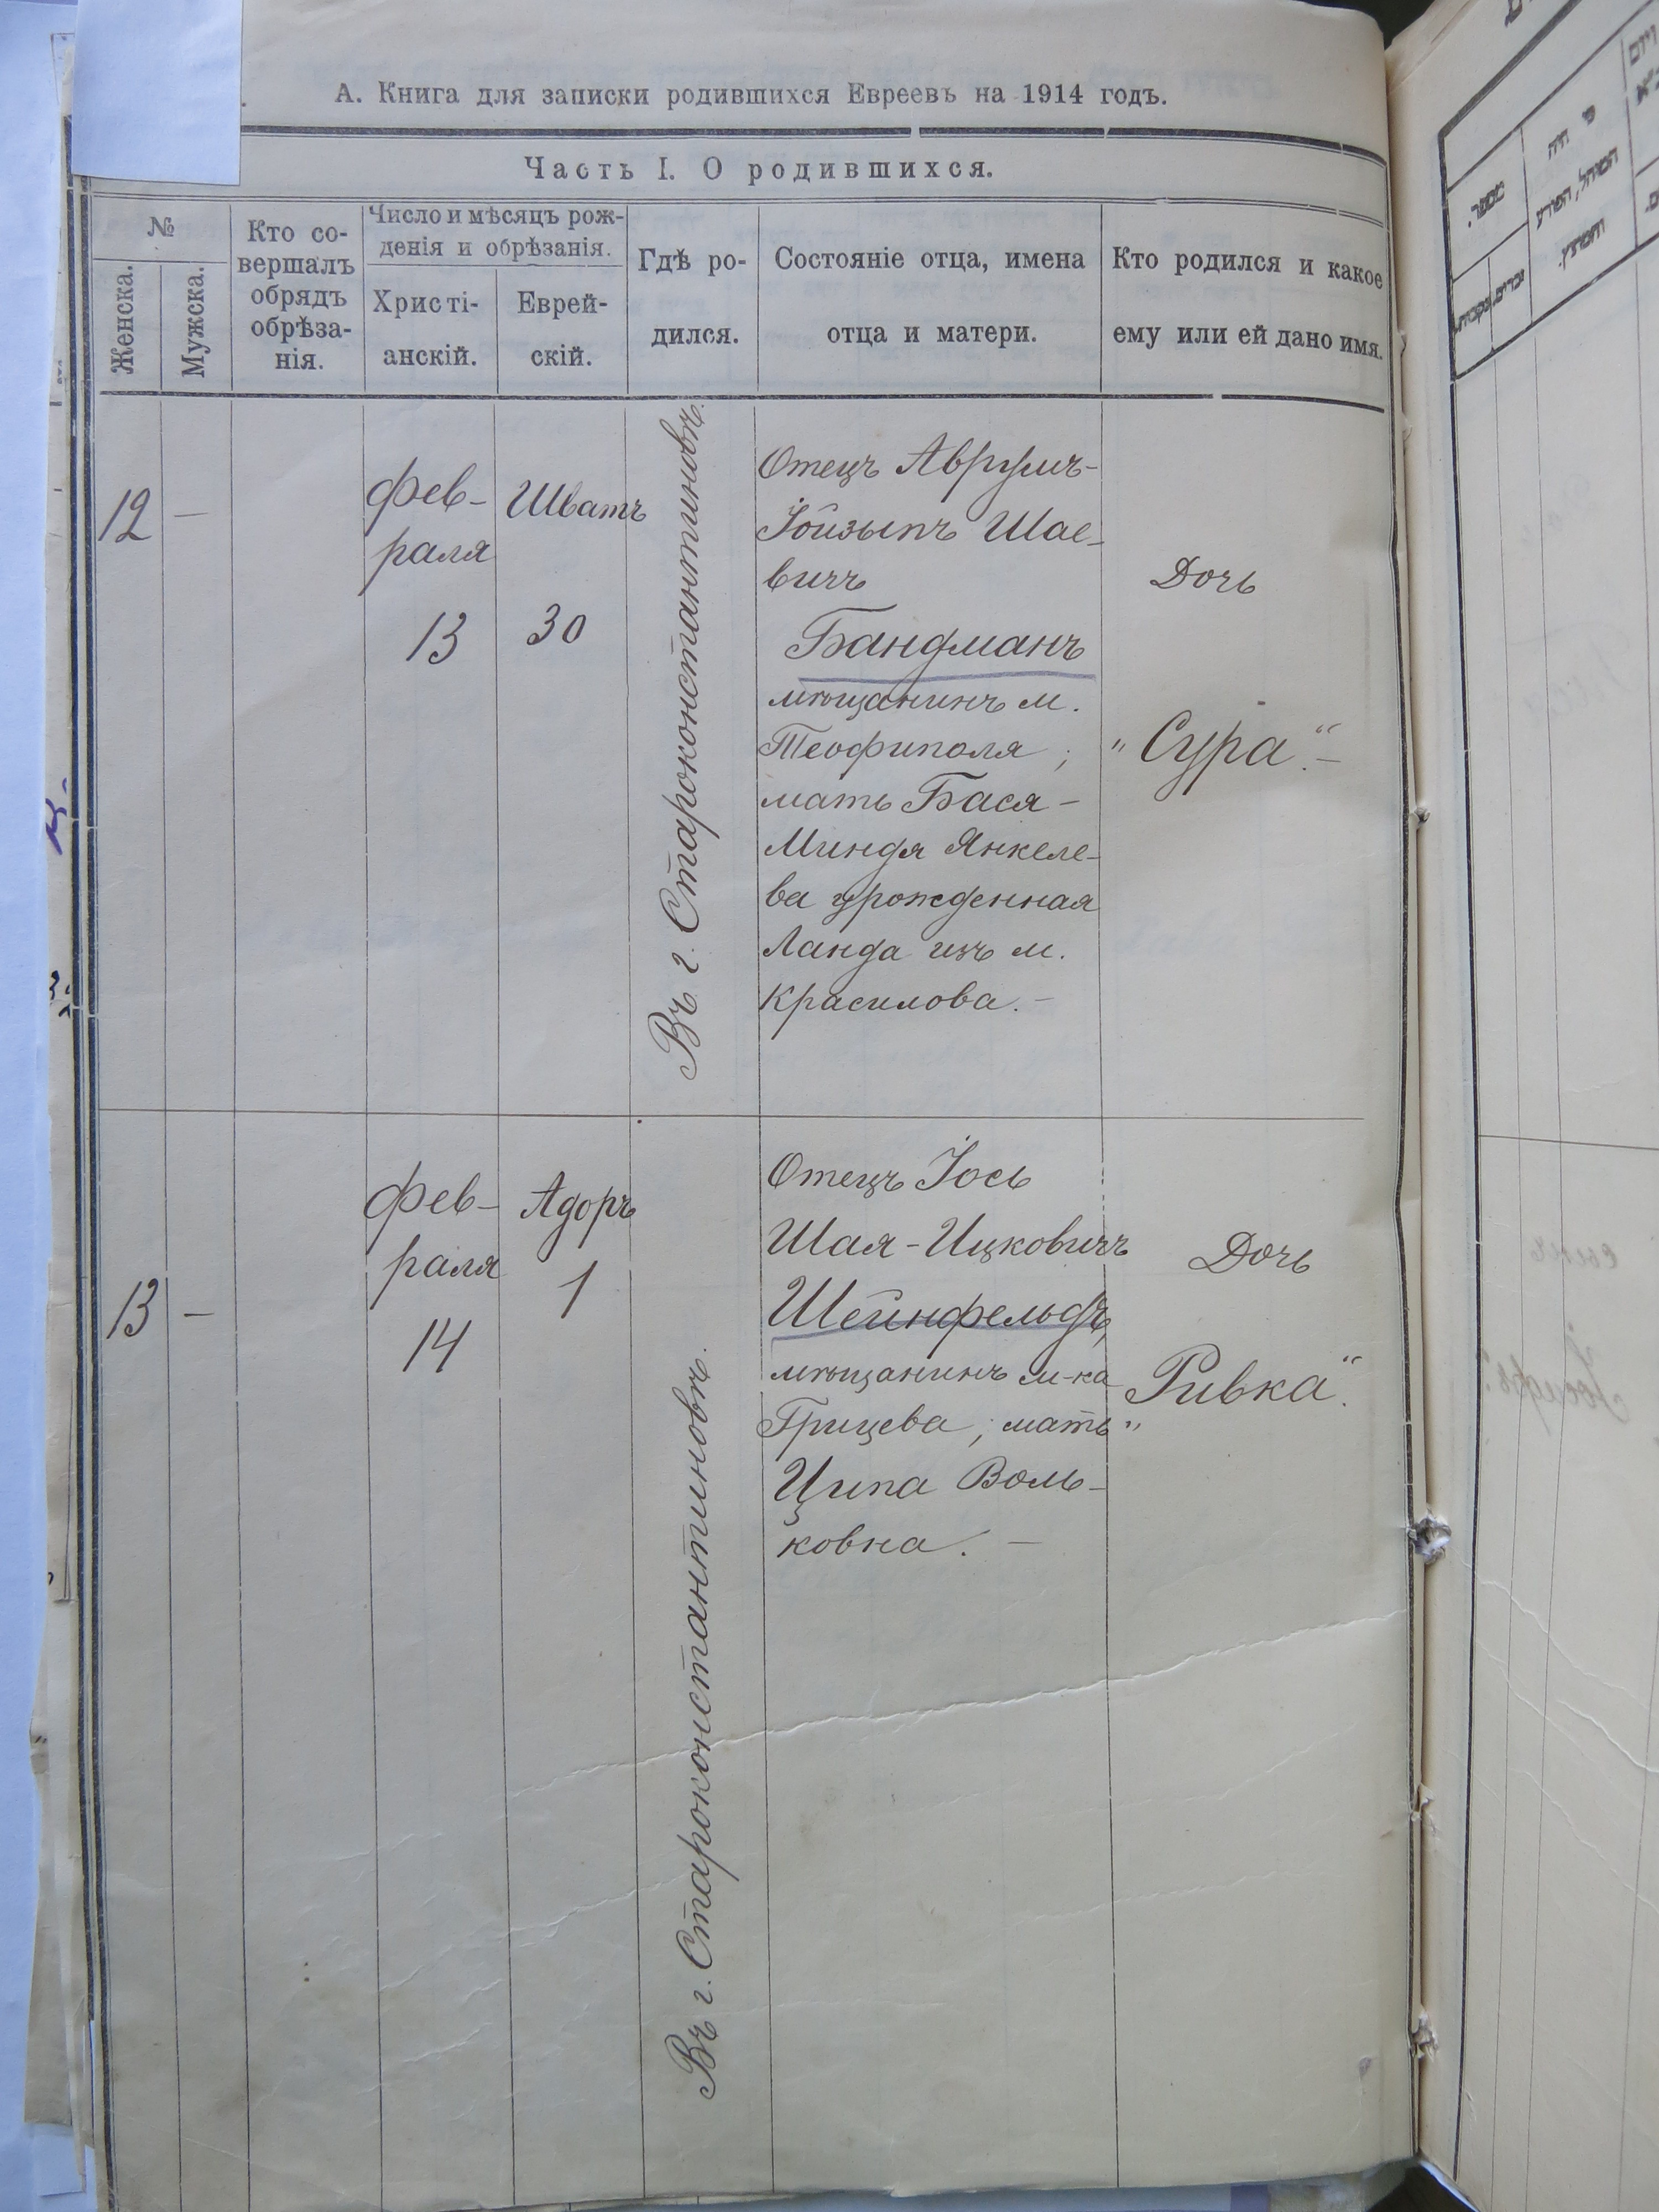 А. Книга для записки родившихся Евреевъ на 1914 годъ.
Часть I. О родившихся.
№
Женска.
Мужска.
Кто со-
вершалъ
обрядъ
обрѣза-
нія.
Число и мѣсяцъ рож-
денія и обрѣзанія.
Христі-
анскій.
Еврей-
скій.
Гдѣ ро-
дился.
Состояніе отца, имена
отца и матери.
Кто родился и какое
ему или ей дано имя.
12
—
фев-
раля
13
Шватъ
30
Въ г. Староконстантиновѣ.
Отецъ Аврумъ-
Іойзыпъ Шае-
вичъ
Бандманъ
мѣщанинъ м.
Теофиполя ;
мать Бася -
Миндя Янкеле-
ва урожденная
Ланда изъ м.
Красилова. -
Дочь
„Сура“. -
13
—
фев-
раля
14
Адоръ
1
Въ г. Староконстантиновѣ.
Отецъ Іось
Шая-Ицковичъ
Шейнфельдъ,
мѣщанинъ м-ка
Грицева ; мать
Ципа Воль-
ковна. -
Дочь
„Ривка“.